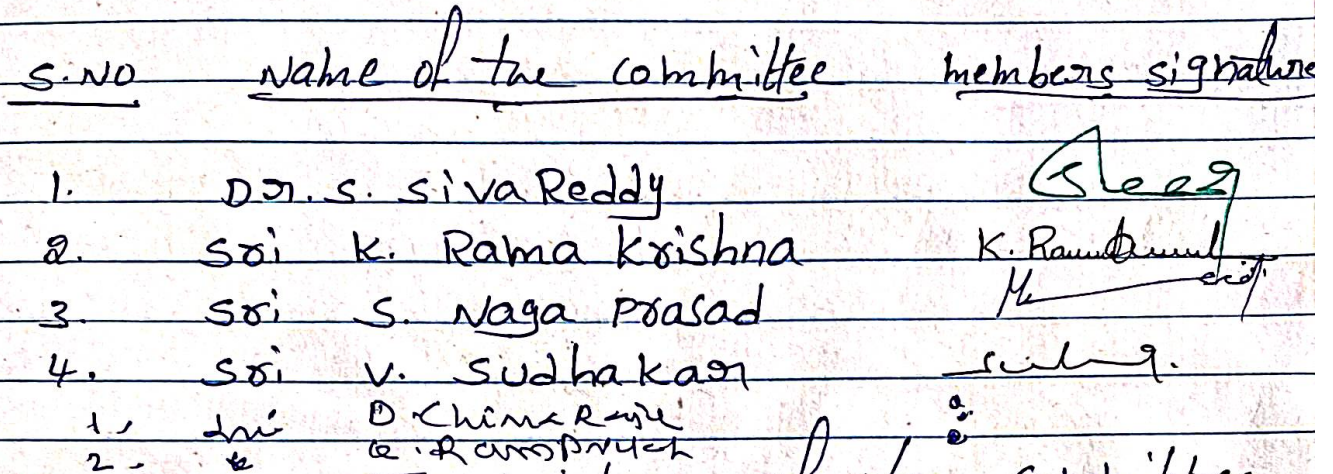 S.NO Name of the committee members signature
1. Dr. S. Siva Reddy
2. Sri K. Rama Krishna K. Ramakrishna
3. Sri S. Naga Prasad
4. Sri V. Sudhakar
1. Sri D. China Raju
2.
committee